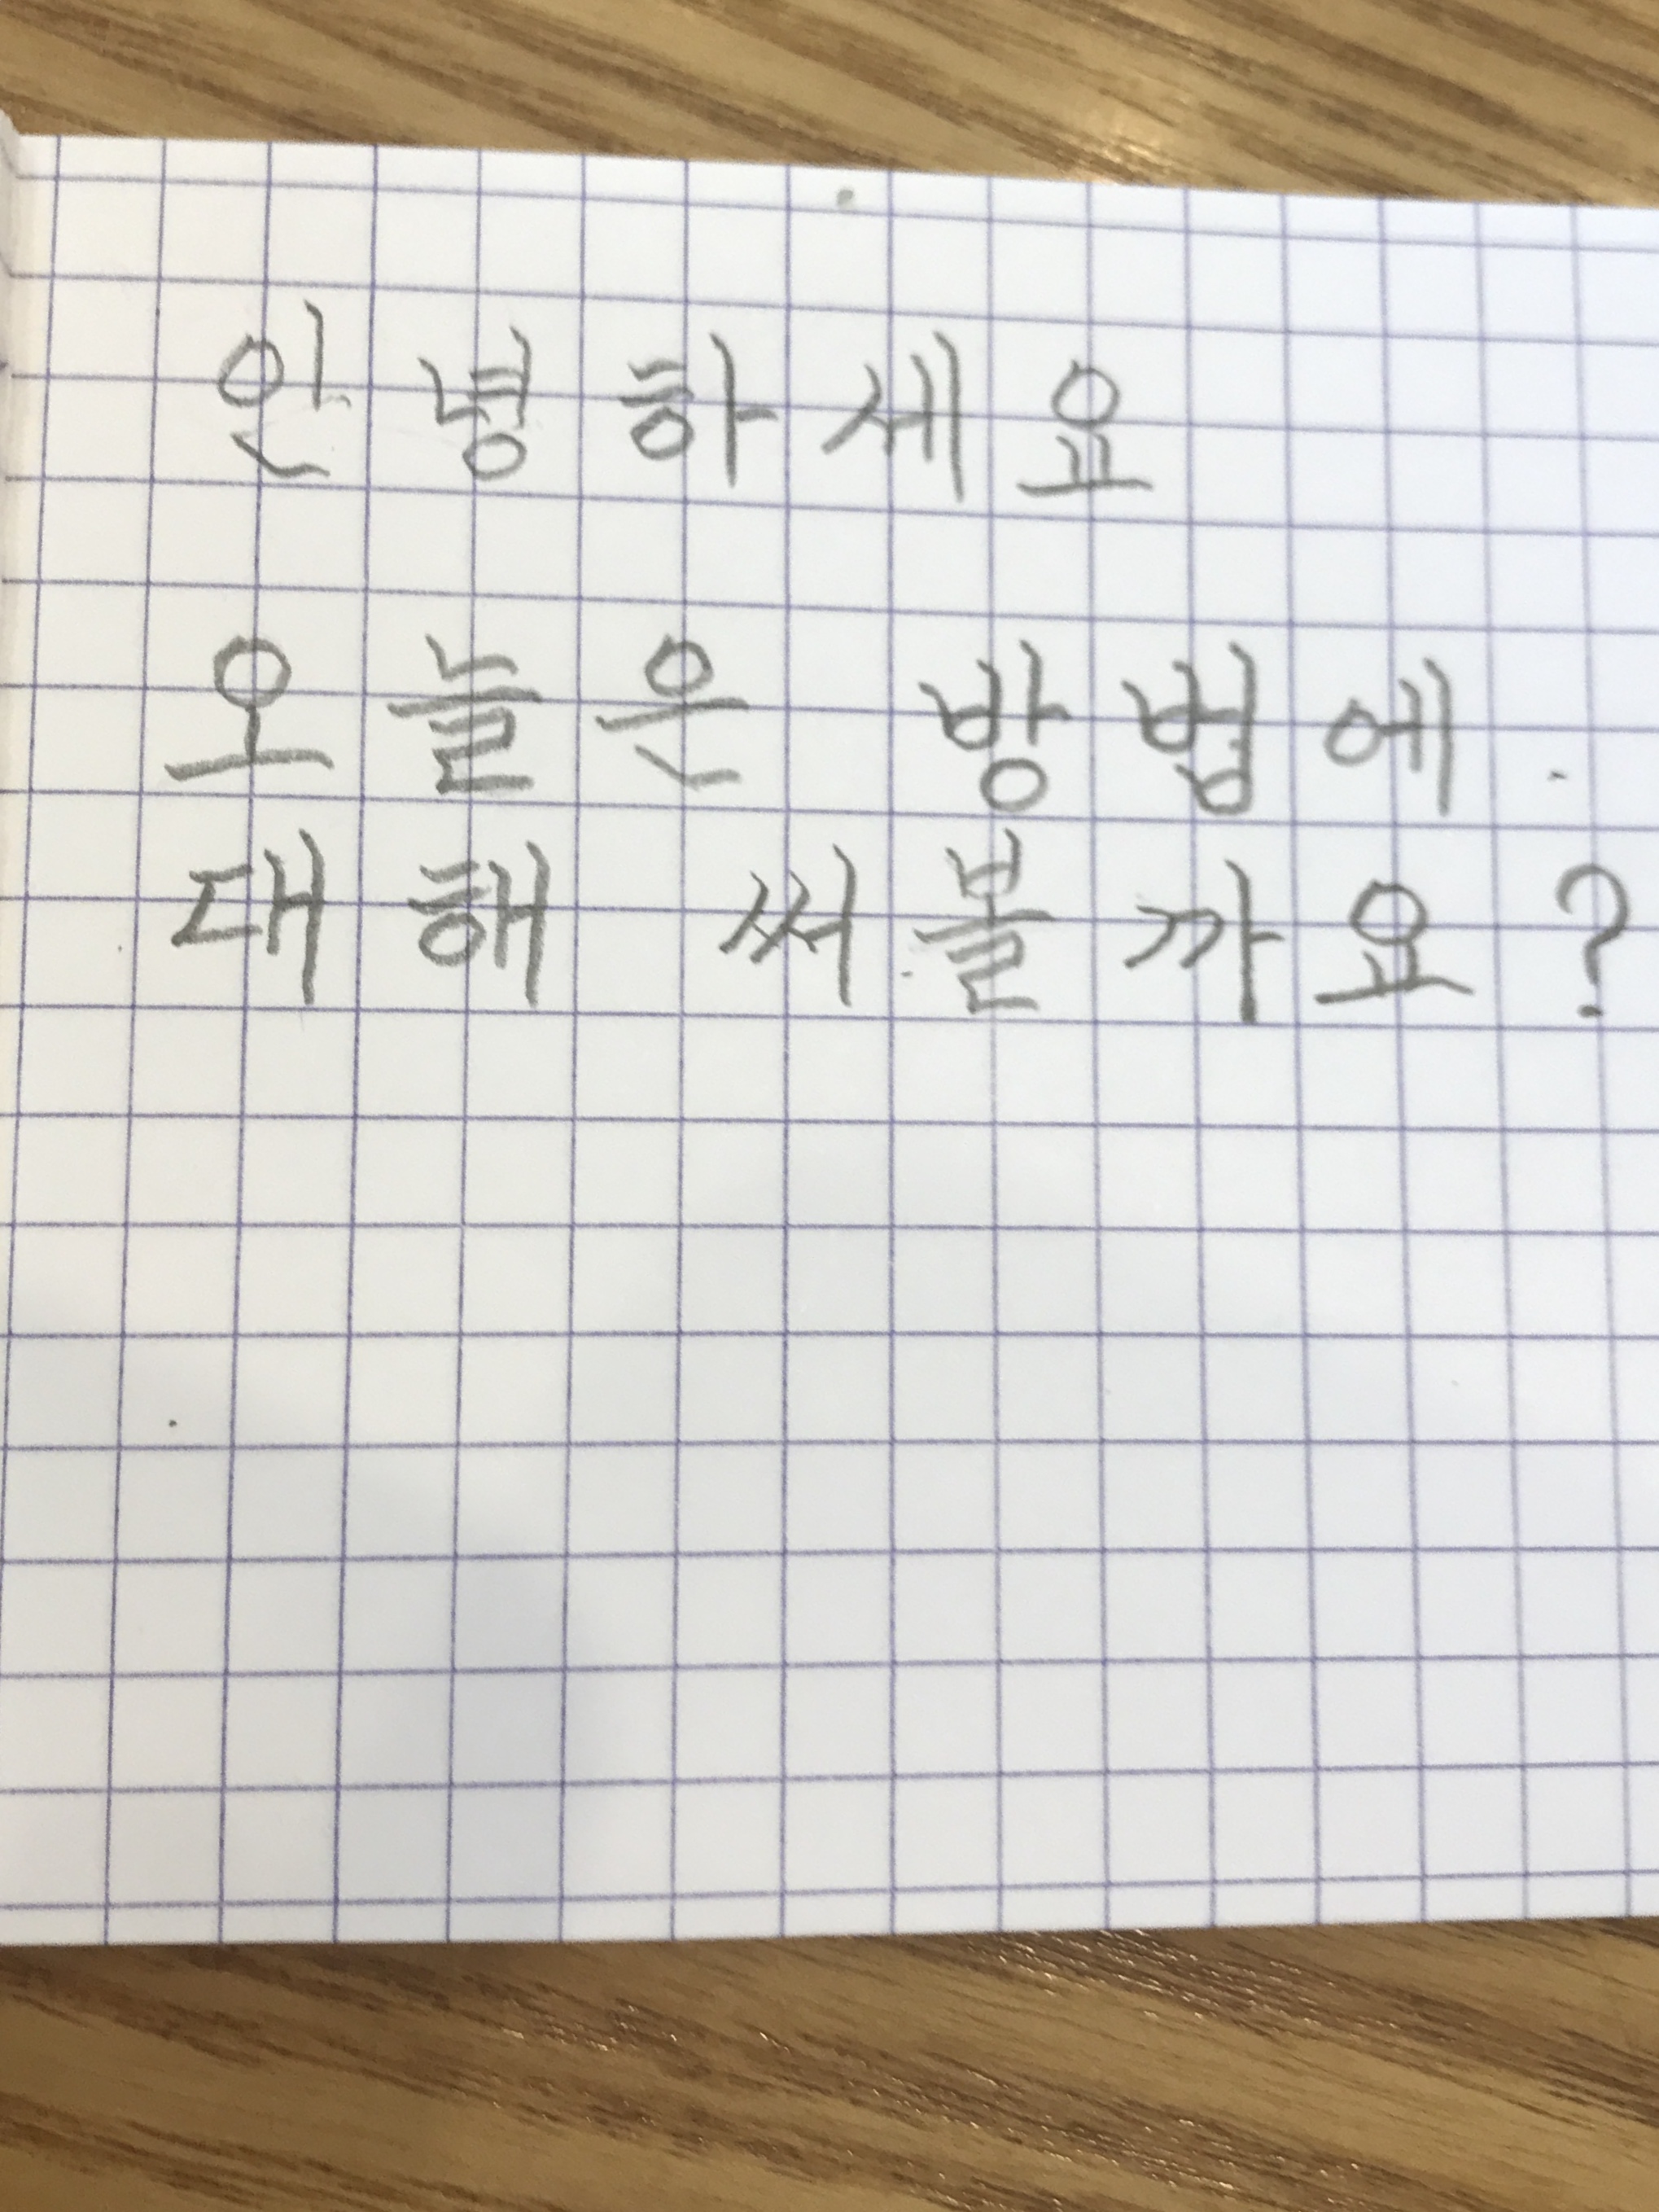 안녕하세요
오늘은 방법에
대해 써볼까요?